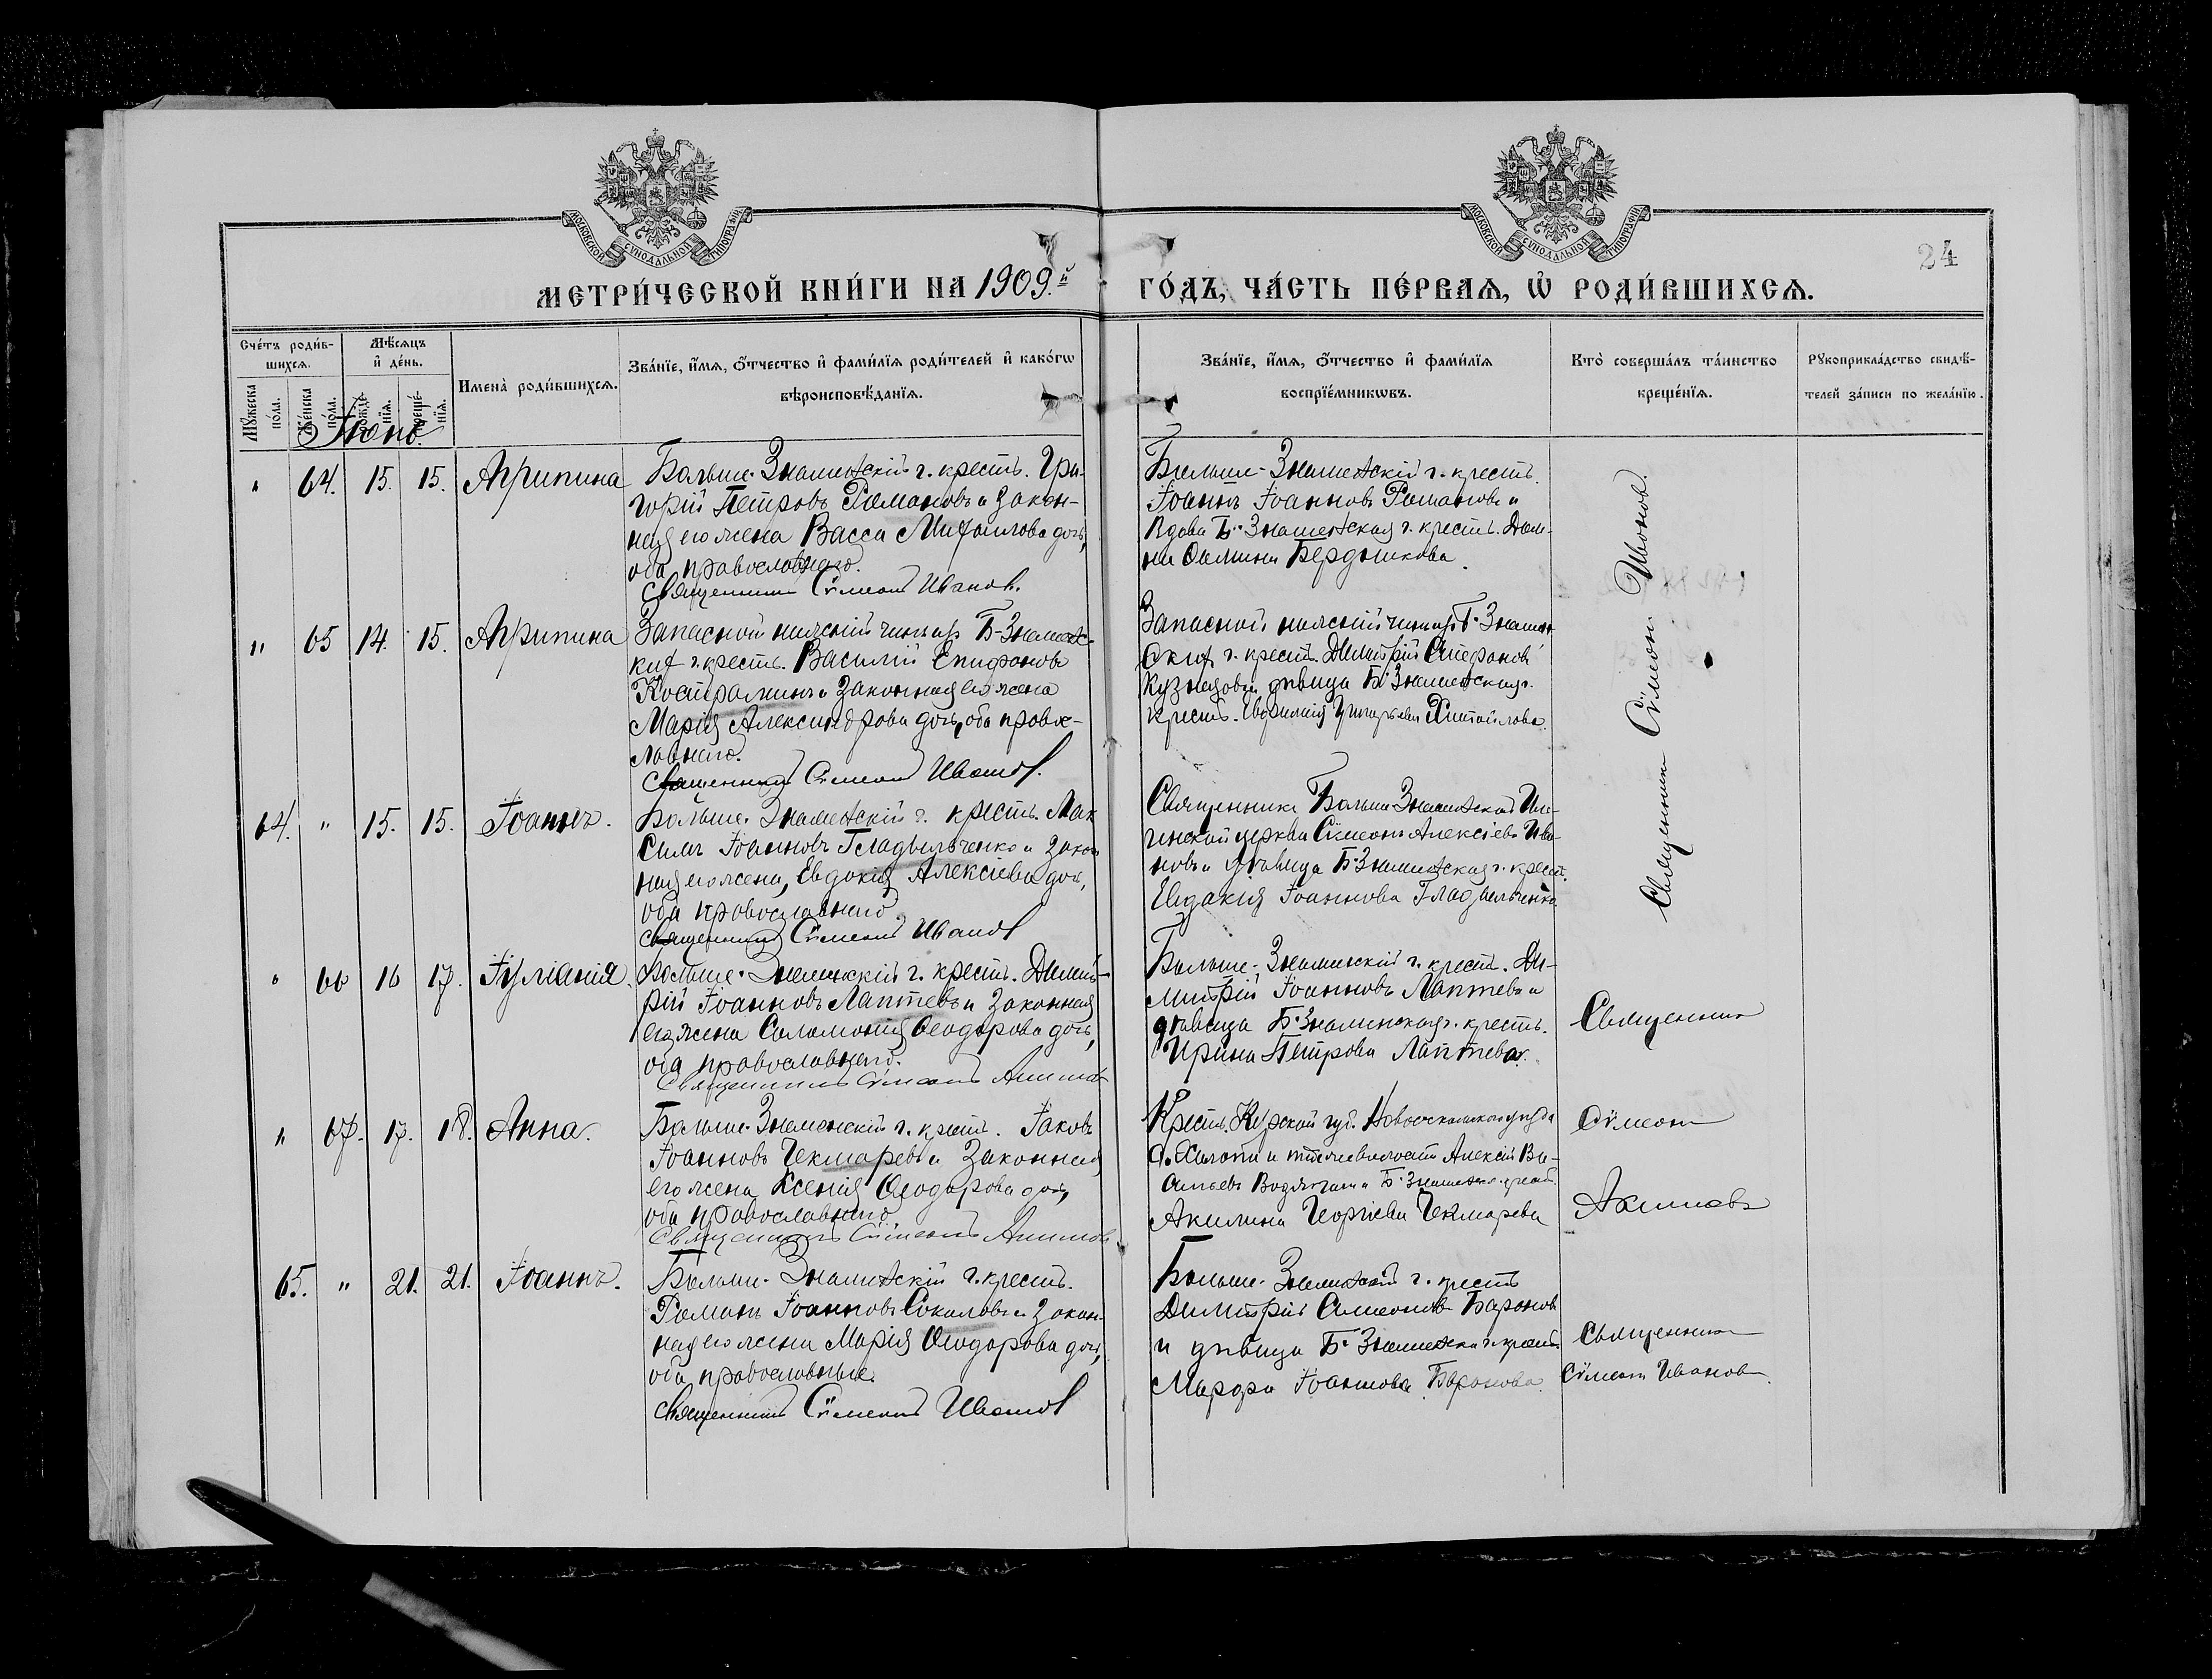 МОСКОВСКОЙ СУНОДАЛЬНОЙ ТИПОГРАФІИ
МОСКОВСКОЙ СУНОДАЛЬНОЙ ТИПОГРАФІИ
24
МЕТРИ́ЧЕСКОЙ КНИ́ГИ НА 1909.й ГО́ДЪ, ЧА́СТЬ ПЕ́РВАѦ, Ѡ҆ РОДИ́ВШИХСѦ.
Сче́тъ роди́в-
шихсѧ.
Мꙋ́жеска по́ла.
Же́нска по́ла.
Мѣ́сѧцъ
и҆ де́нь.
рожде́-нїѧ.
креще́-нїѧ.
Имена̀ роди́вшихсѧ.
Зва́нїе, и҆́мѧ, ѻ҆́тчество и҆ фами́лїѧ роди́телей и҆ како́гѡ
вѣроисповѣ́данїѧ.
Зва́нїе, и҆́мѧ, ѻ҆́тчество и҆ фами́лїѧ
воспрїе́мникѡвъ.
Кто̀ соверша́лъ та́инство
креще́нїѧ.
Рꙋкоприкла́дство свидѣ́-
телей за́писи по жела́нїю.
Іюнь
" 64. 15. 15. Агрипина
Больше-Знаменскій г. крестъ. Гри-
горій Петровъ Романовъ и закон-
ная его жена Васса Михаилова дочь,
оба православнаго.
Священникъ Сѵмеонъ Иванов.
Больше-Знаменскій г. крестъ.
Іоаннъ Іоанновъ Романовъ и
вдова Б.-Знаменская г. крестъ. Дом-
на Бердникова.
Священникъ Сѵмеонъ Ивановъ.
" 65 14. 15. Агрипина
Запасной нижній чинъ изъ Б-Знаменс-
ких г. крестъ. Василій Епифановъ
Костромин и законная его жена
Марія Александрова дочь, оба правос-
лавнаго.
Священникъ Сѵмеонъ Иванов.
Запасной нижній чинъ изъ Б-Знамен
ских г. крестъ. Димитрій Стефановъ
Кузнецовъ и дѣвица Б-Знаменская г.
крестъ. Евфимія Григорьева
64. " 15. 15. Іоаннъ.
Больше-Знаменскій г. крестъ. Мак
симъ Іоанновъ Гладыльченко и закон
ная его жена, Евдокія Алексіева дочь,
оба православнаго.
Священникъ Сѵмеонъ Иванов
Священникъ Больше Знаменской
церкви Сѵмеонъ Алексіевъ Ива-
новъ и дѣвица Б-Знаменская г. крест.
Евдокія Іоаннова Гладыльченко
" 66 16 17. Іуліанія
Больше-Знаменскій г. крестъ. Димит-
рій Іоанновъ Лаптевъ и законная
его жена Саломонія Ѳеодорова дочь,
оба православнаго.
Священникъ Сѵмеонъ Акимов
Больше-Знаменскій г. крест. Ди-
митрій Іоанновъ Лаптевъ и
дѣвица Б-Знаменская г. крестъ.
Ирина Петрова Лаптева.
Священникъ
" 67. 17. 18. Анна.
Больше-Знаменскій г. крест. Іаковъ
Іоанновъ Чекмаревъ и законная
его жена Ксенія Ѳеодорова дочь,
оба православнаго
Священникъ Сѵмеонъ Акимов
Крестъ. Курской губ. Новооскольскаго уѣзда
Алексій Ва-
сильевъ и Б-Знаменская крест.
Акилина Георгіева Чекмарева
Сѵмеонъ
Акимовъ
65. " 21. 21. Іоаннъ.
Больше-Знаменскій г. крестъ.
Романъ Іоанновъ Соколовъ и закон-
ная его жена Марія Ѳеодорова дочь,
оба православные.
Священникъ Сѵмеонъ Иванов
Больше-Знаменскій г. крестъ
Димитрій Симеоновъ Бароновъ
и дѣвица Б-Знаменская г. крест.
Марфа Іоаннова Баронова.
Священникъ
Сѵмеонъ Ивановъ.